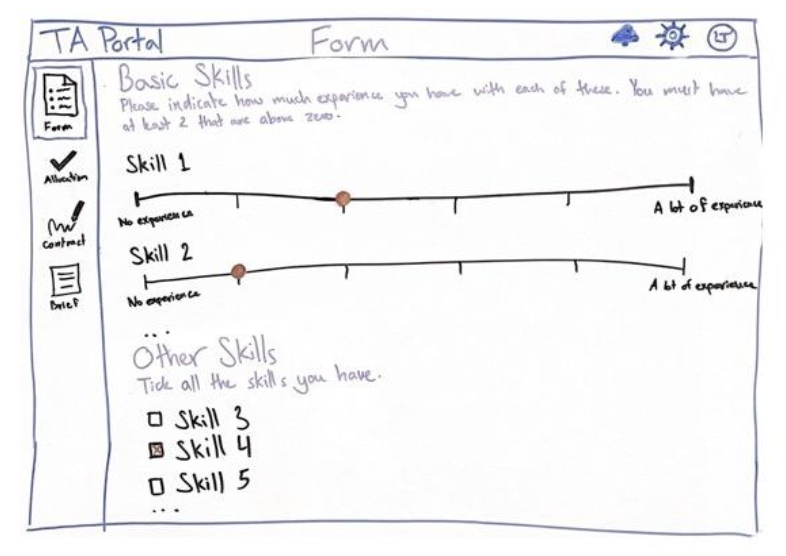 TA Portal
Form
LT
Form
Allocation
Contract
Brief
Basic Skills
Please indicate how much experience you have with each of these. You must have
at least 2 that are above zero.
Skill 1
No experience
A lot of experience
Skill 2
No experience
A lot of experience
...
Other Skills
Tick all the skills you have.
Skill 3
Skill 4
Skill 5
...